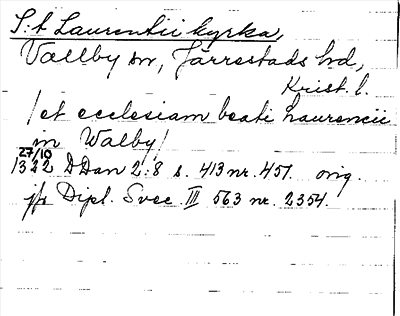 S:t Laurentii kyrka,
Vallby sn, Järrestads hd,
Krist. l.
/et ecclesiam beati Laurencii
in Walby/
27/10
1322 DDan 2:8 s. 413 nr. 457 orig.
jfr Dipl. Svec. III 563 nr. 2354.